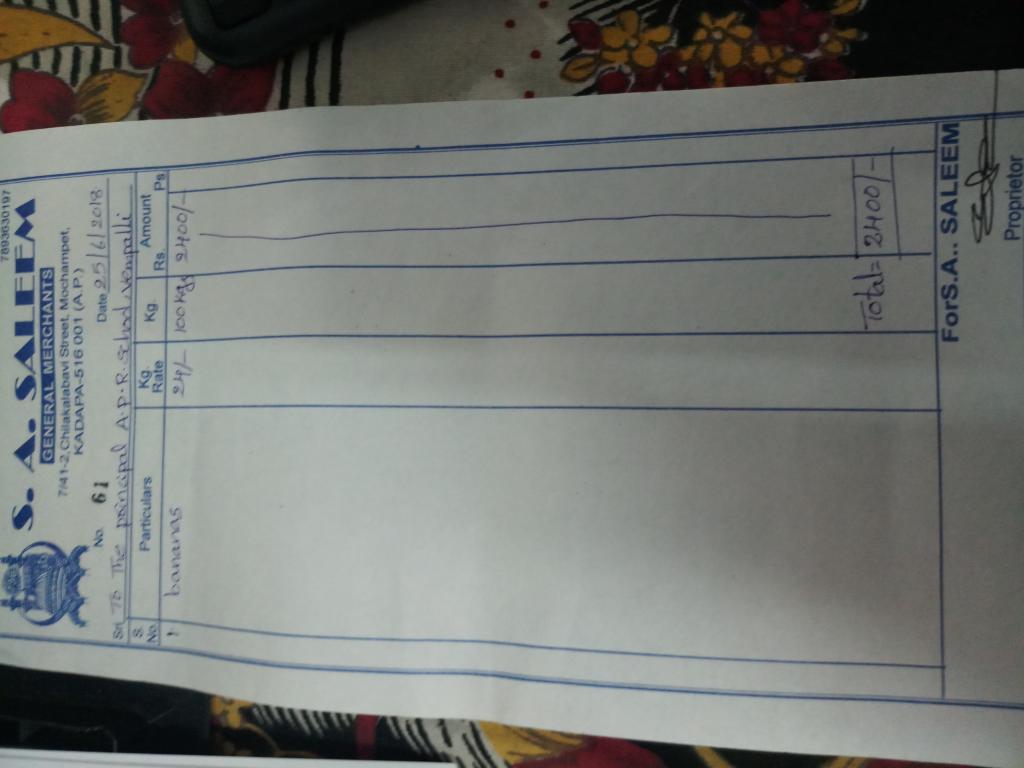 7893630197
S. A. SALEEM
GENERAL MERCHANTS
7/41-2, Chilakalabavi Street, Mochampet,
KADAPA-516 001 (A.P.)
No. 61 Date 25/6/2018
Sri To The principal A.P.R. School, Vempalli
S. No. Particulars Kg. Rate Kg. Amount Rs. Ps.
1 bananas 24/- 100 kgs 2400/-
Total= 2400/-
ForS.A.. SALEEM
Proprietor